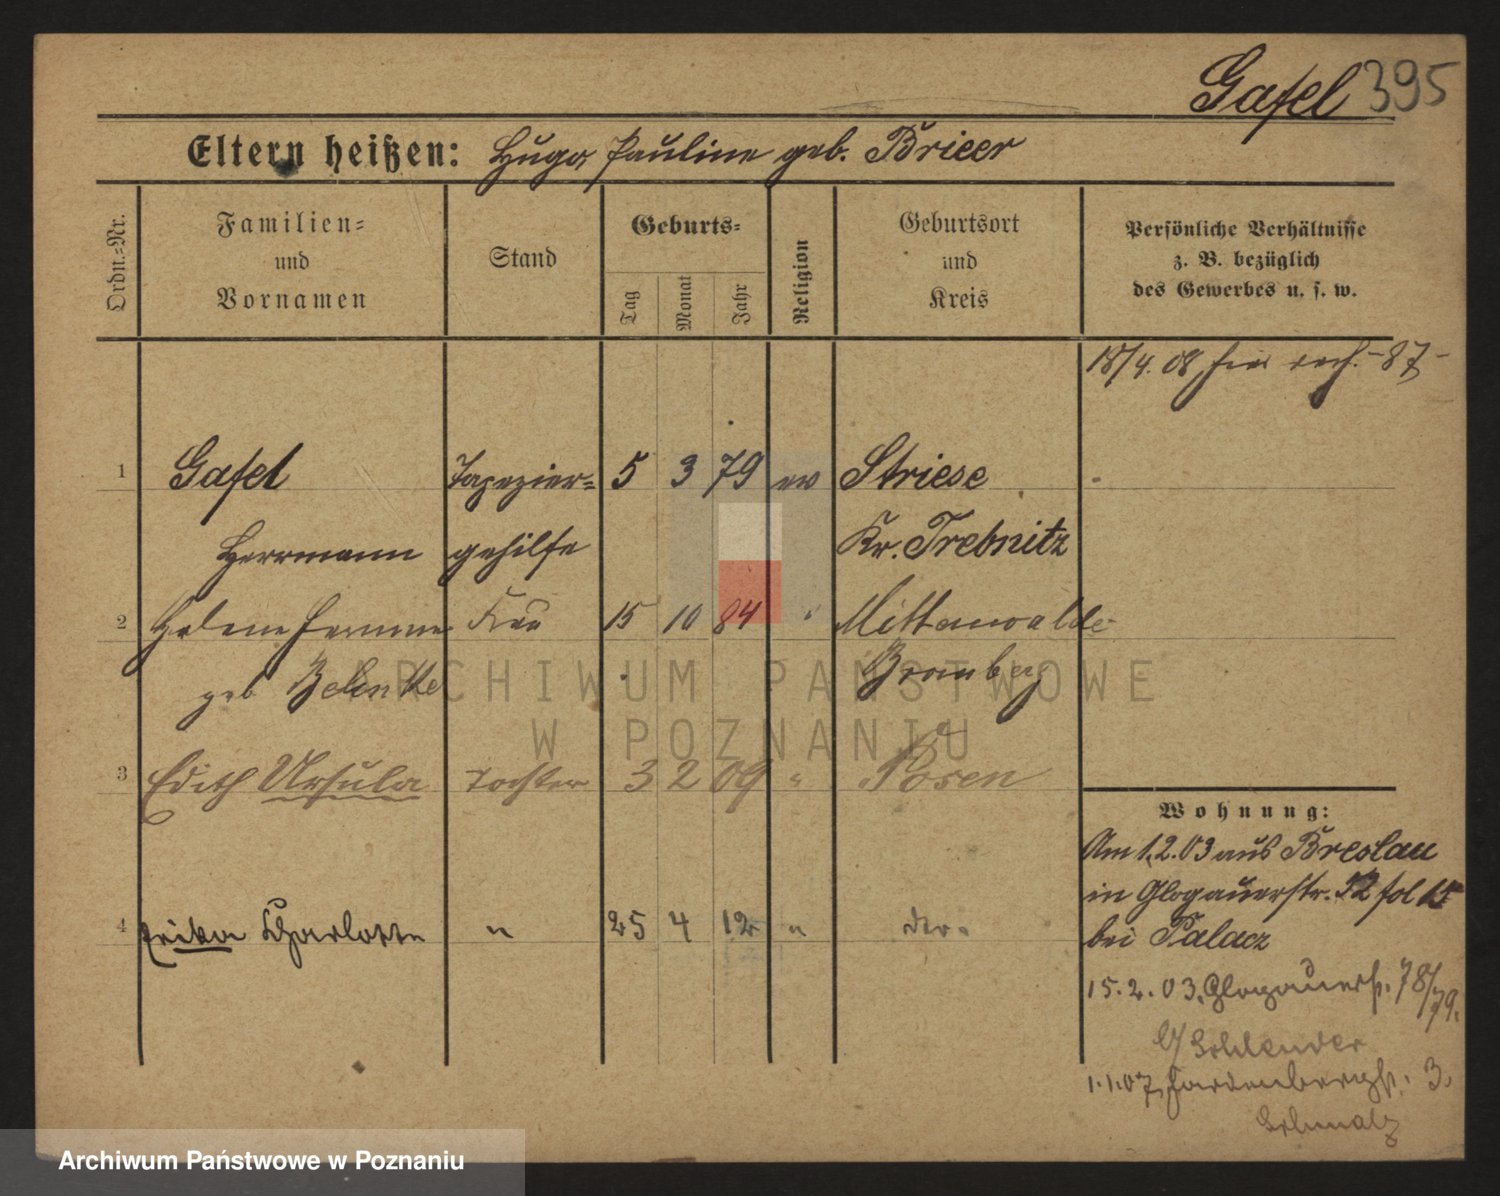 Gafel 395
Eltern heißen: Hugo, Pauline geb. Brieer
Ordn.=Nr.
Familien=
und
Vornamen
Stand
Geburts=
Tag
Monat
Jahr
Religion
Geburtsort
und
Kreis
Persönliche Verhältnisse
z. B. bezüglich
des Gewerbes u. s. w.
18/4. 08 -87-
1 Gafel Tapezier= 5 3 79 ev Striese
Herrmann gehilfe Kr. Trebnitz
2 Helene Frau 15 10 84 " Mittenwalde
geb Bromberg
ARCHIWUM PAŃSTWOWE
W POZNANIU
3 Edith Ursula Tochter 3 2 09 " Posen
Wohnung:
Am 1.2.03 aus Breslau
in Glogauerstr. fol 15
4 Erika Charlotte " 25 4 12 "
bei Palacz
15.2.03. Glogauerstr. 78/79.
b/ Schlender
1.1.07, Hardenbergstr. 3.
Schmalz
Archiwum Państwowe w Poznaniu